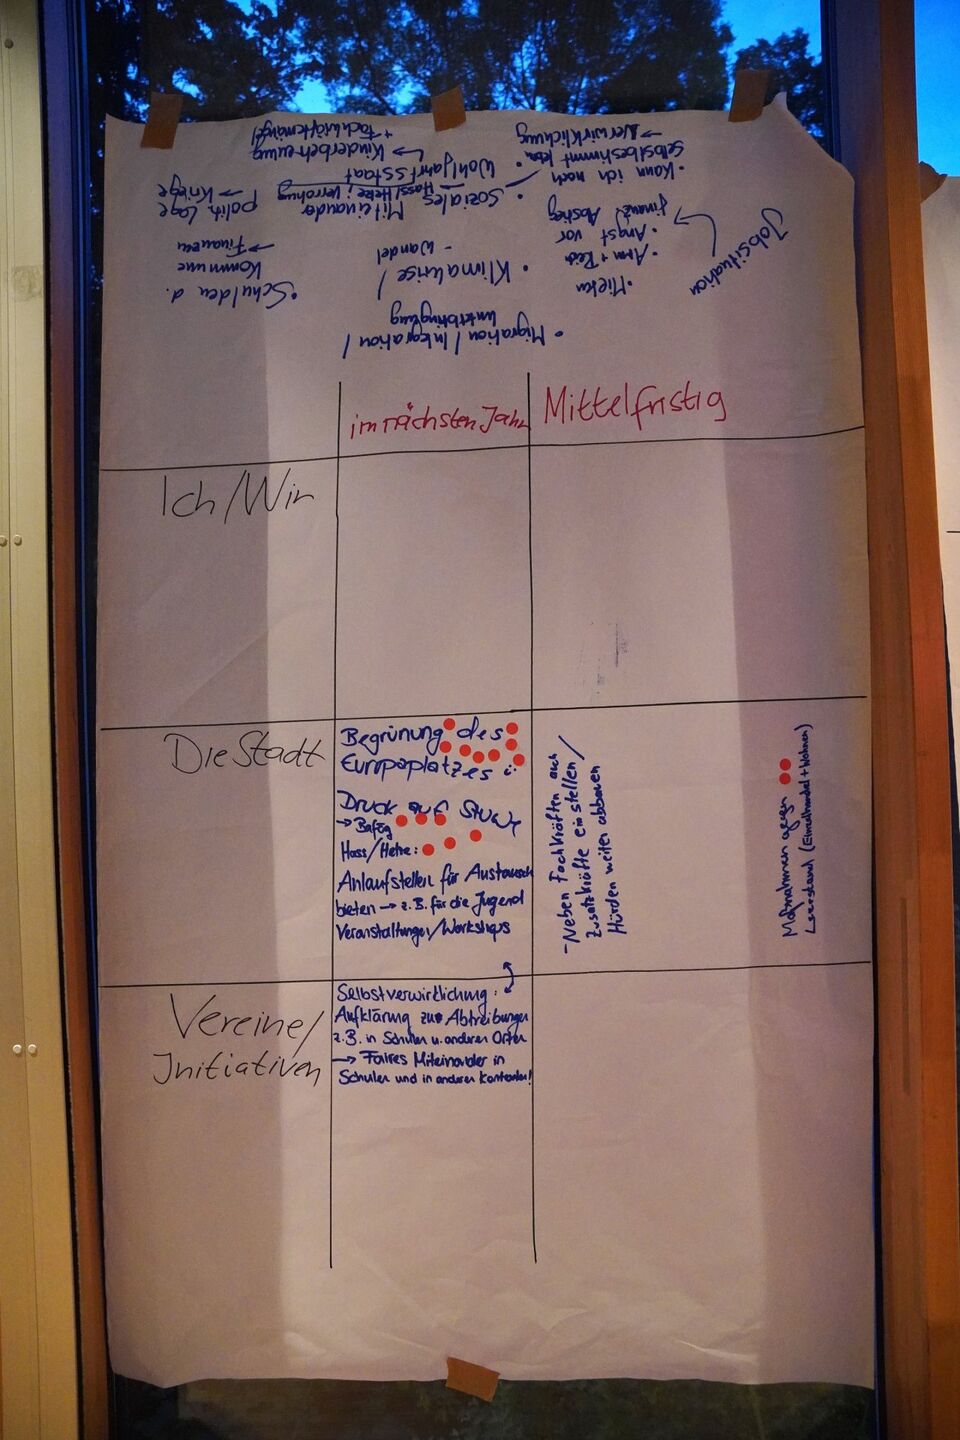 • Migration / Integration /
Unterbringung
• Klimakrise /
- Wandel
• Soziales Miteinander
Hass/Hetze ; Verrohung
• Wohlfahrtsstaat
↳ Kinderbetreuung
+ Fachkräftemangel
• Schulden d.
Kommune
→ Finanzen
polit. Lage
→ Kriege
• Mieten
• Arm + Reich
• Angst vor
finanz. Abstieg
Jobsituation
• Kann ich noch
selbstbestimmt leben
→ Verwirklichung
im nächsten Jahr
Mittelfristig
Ich/Wir
Die Stadt
Begrünung des
Europaplatzes
Druck auf StuWe
→ Bafög
Hass/Hetze:
Anlaufstellen für Austausch
bieten → z.B. für die Jugend
Veranstaltungen/Workshops
- Neben Fachkräften auch
Zusatzkräfte einstellen /
Hürden weiter abbauen
Maßnahmen gegen
Leerstand (Einzelhandel + Wohnen)
Vereine/
Initiativen
Selbstverwirklichung:
Aufklärung zu Abtreibungen
z.B. in Schulen u. anderen Orten
→ Faires Miteinander in
Schulen und in anderen Kontexten!